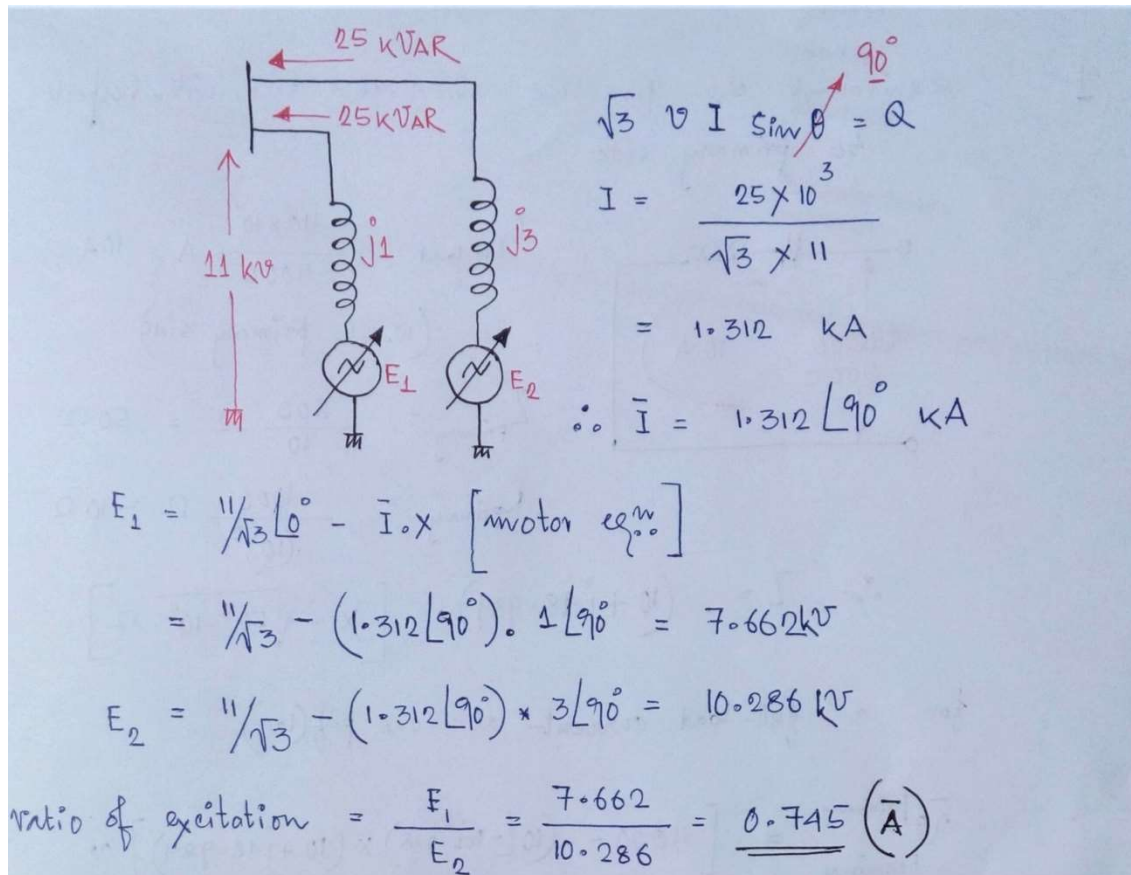 25 KVAR
25 KVAR
11 kv
j1
j3
E1
E2
90°
√3 V I Sin θ = Q
I = 25 × 10^3 / √3 × 11
= 1.312 kA
∴ Ī = 1.312 ∠90° kA
E1 = 11/√3 ∠0° - Ī.X [motor eqn..]
= 11/√3 - (1.312∠90°). 1∠90° = 7.662kV
E2 = 11/√3 - (1.312∠90°) * 3∠90° = 10.286 kV
ratio of excitation = E1 / E2 = 7.662 / 10.286 = 0.745 (Ā)